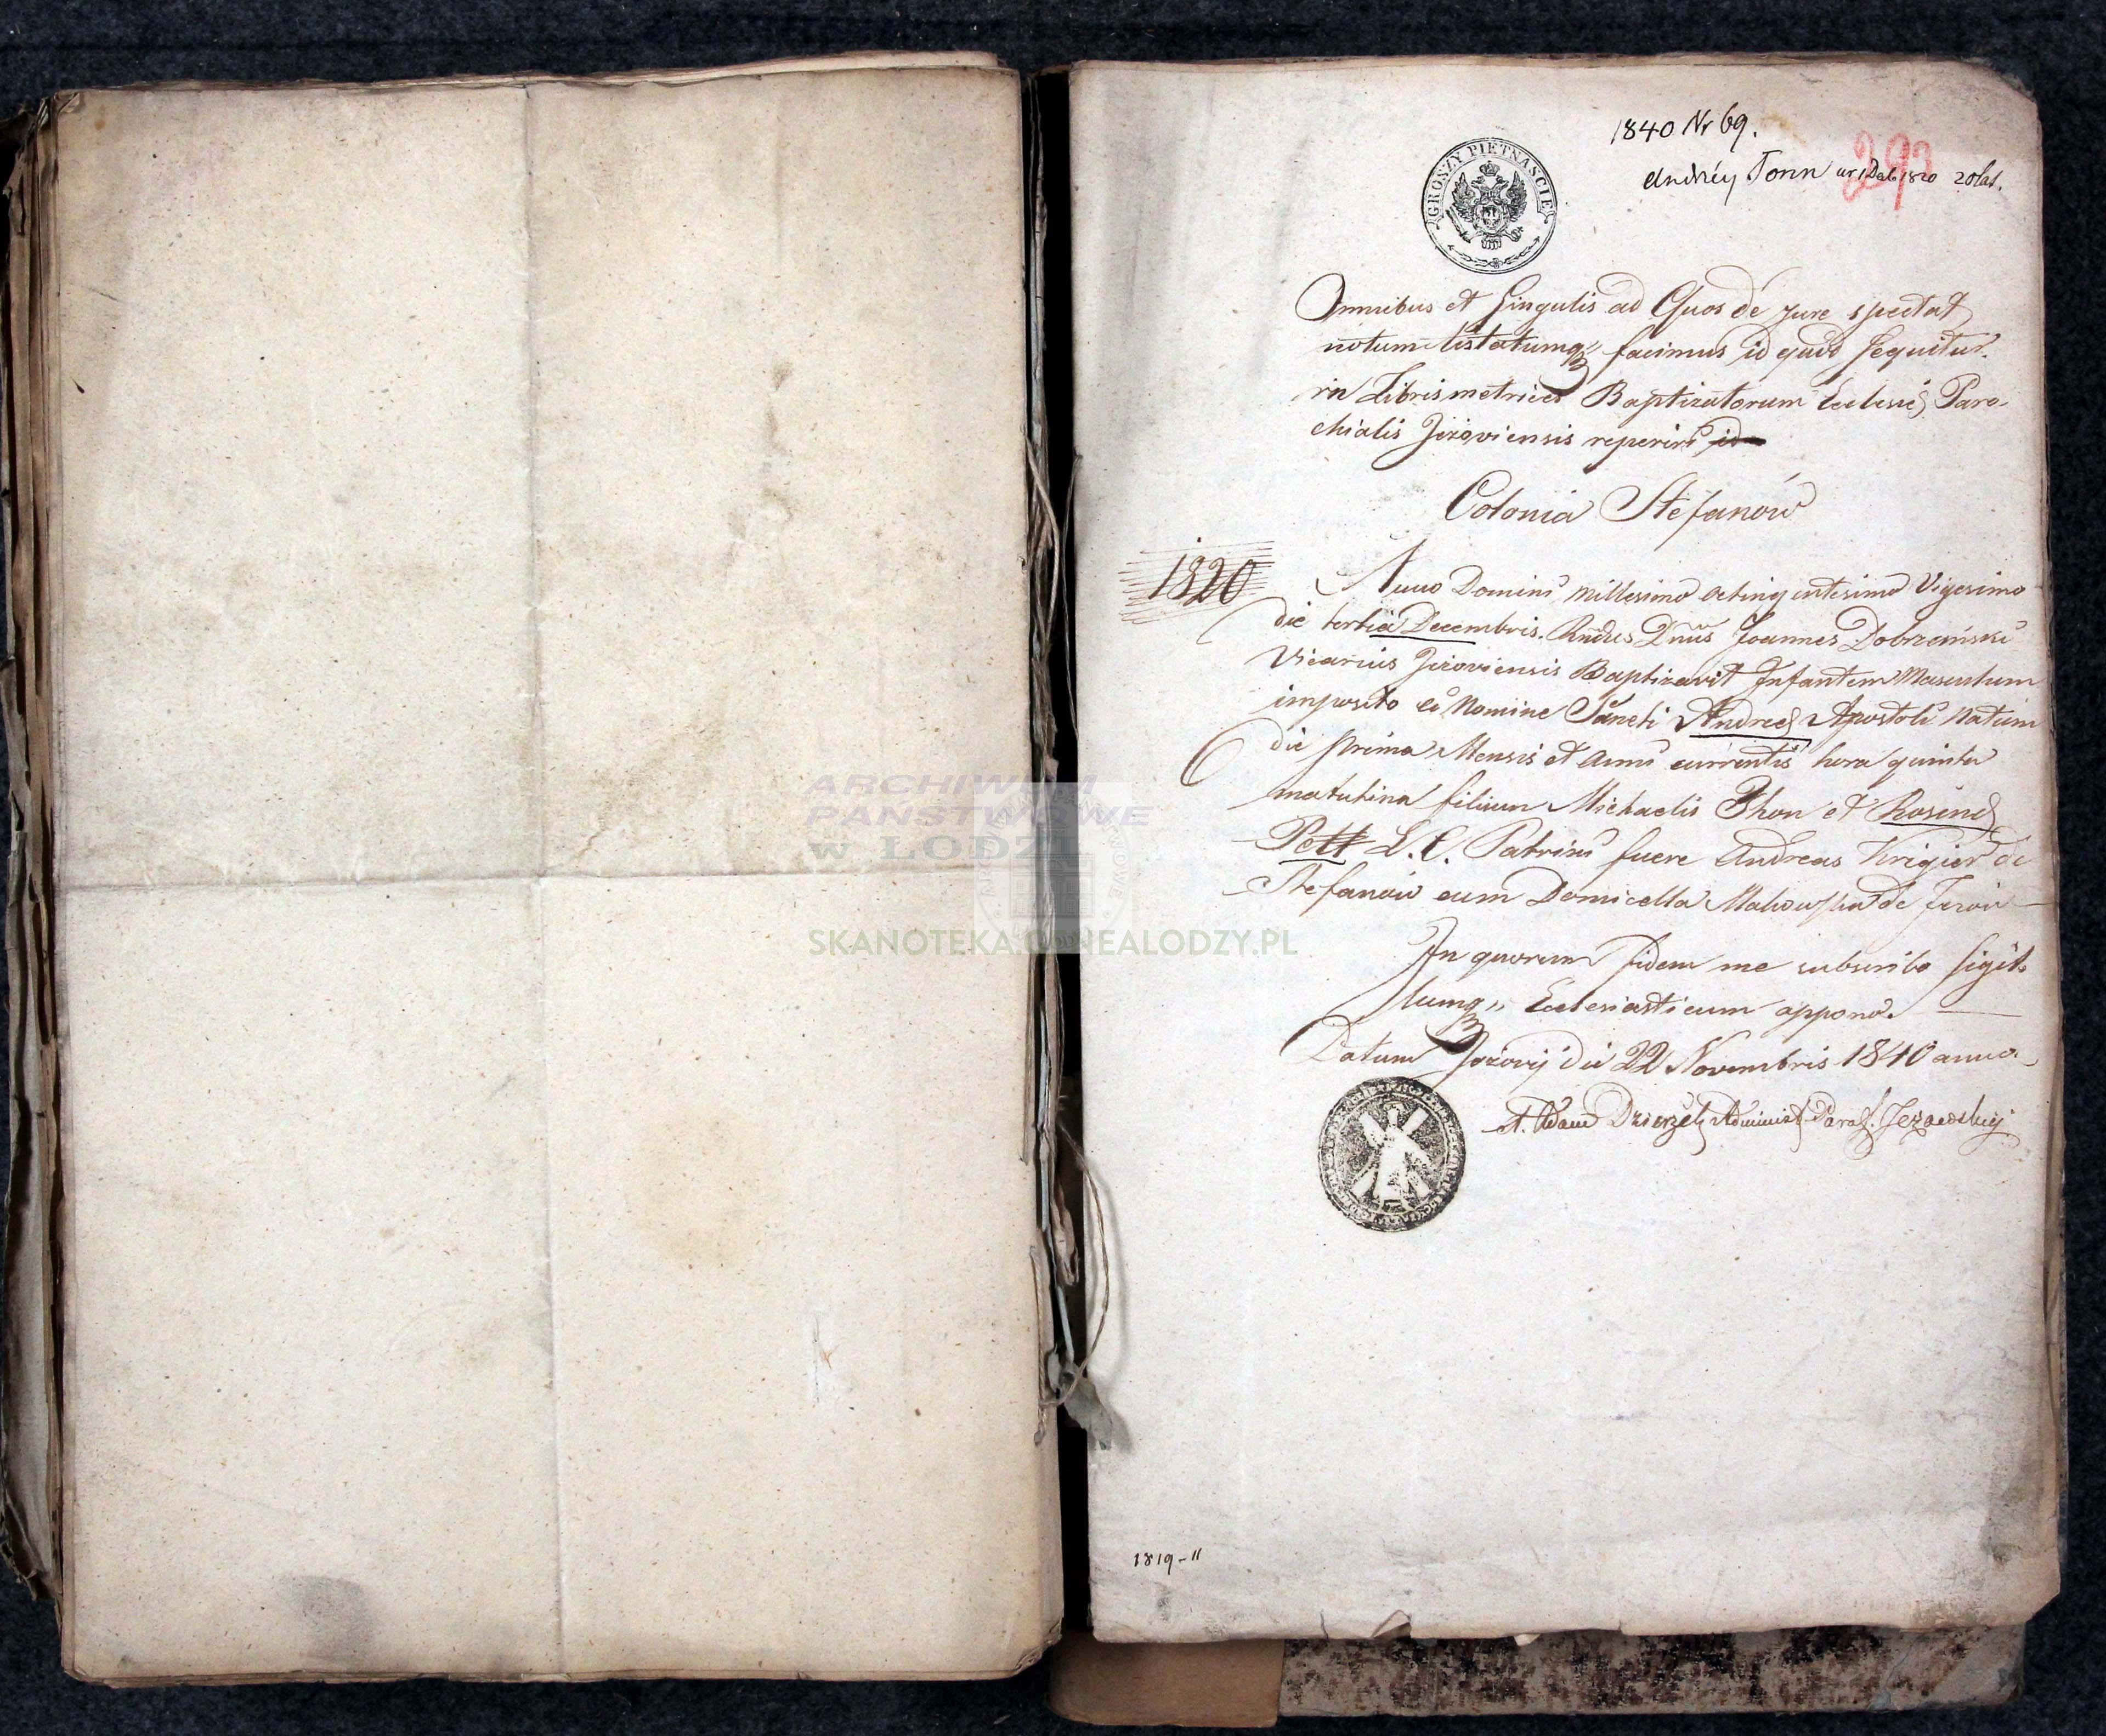 1840 Nr 69.
293
Andréy Tonn ur 1 Deb 1820 20 lat.
GROSZY PIĘTNAŚCIE
Omnibus et Singulis ad Quos de jure spectat
notum testatumq, facimus id quod sequitur.
in Libris metrices Baptizatorum Eclesię Paro-
chialis Jeżoviensis reperiri id
Colonia Stefanów
1820
Anno Domini millesimo octingentesimo Vigesimo
die tertia Decembris. Rndus Dnus Joannes Dobrzański
Vicarius Jeżoviensis Baptizavit Infantem Masculum
imposito ei Nomine Sancti Andreę Apostoli natum
die prima Mensis et anni currentis hora quinta
matutina filium Michaelis Thon et Rosinę
Pett L. C. Patrini fuere Andreas Krigier de
Stefanów cum Domicella Makowska de Jezów
In quorum fidem me subscribo sigil-
lumq, Ecclesiasticum appono.
Datum Jeżovij die 22 Novembris 1840 anno
X. Adam Administ. Paraf. Jeżowskiej
1819-11
ARCHIWUM
PAŃSTWOWE
w ŁODZI
SKANOTEKA.GENEALODZY.PL